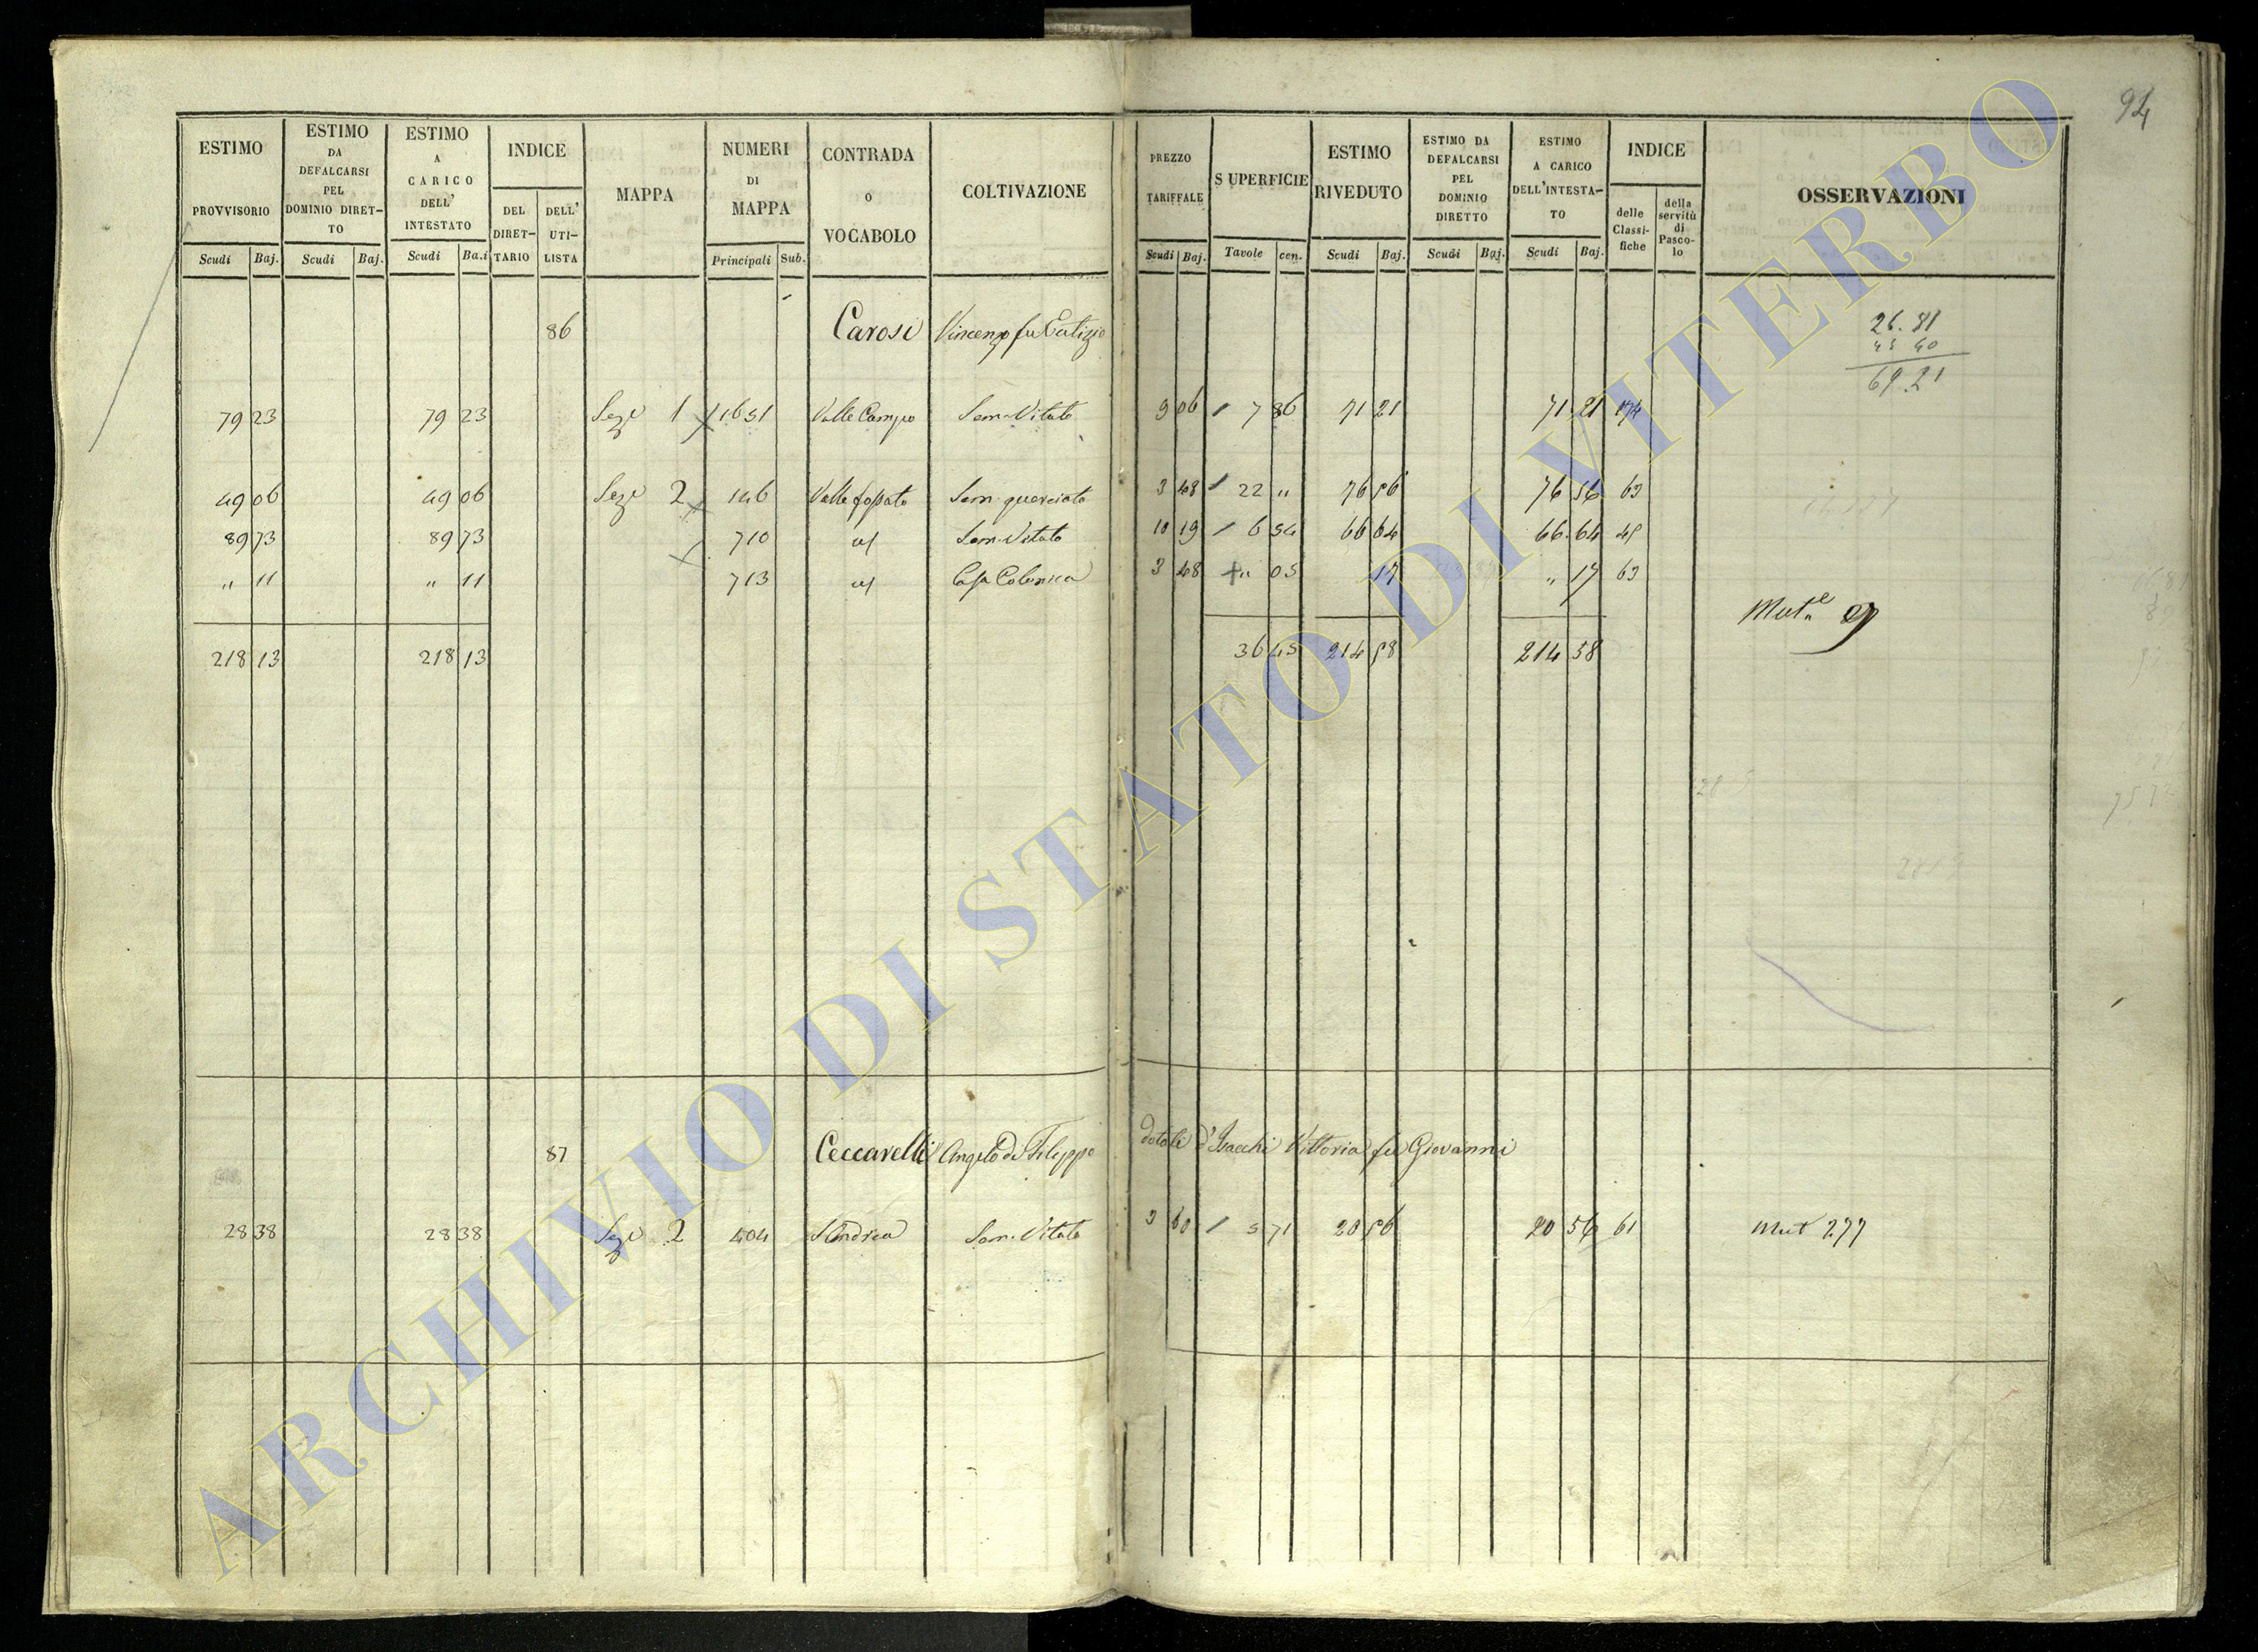 94
ESTIMO PROVVISORIO
ESTIMO DA DEFALCARSI PEL DOMINIO DIRET-TO
ESTIMO A CARICO DELL' INTESTATO
INDICE
DEL DIRET-TARIO
DELL' UTI-LISTA
MAPPA
NUMERI DI MAPPA
CONTRADA O VOCABOLO
COLTIVAZIONE
PREZZO TARIFFALE
SUPERFICIE
ESTIMO RIVEDUTO
ESTIMO DA DEFALCARSI PEL DOMINIO DIRETTO
ESTIMO A CARICO DELL'INTESTA-TO
INDICE
delle Classi-fiche
della servitù di Pasco-lo
OSSERVAZIONI
Scudi Baj. Scudi Baj. Scudi Ba.i Principali Sub. Scudi Baj. Tavole cen. Scudi Baj. Scudi Baj. Scudi Baj.
86 Carosi Vincenzo fu Eutizio
26.81
69.21
79 23 79 23 Sezе 1 1651 Valle Campo Sem. Vitato 9 06 7 86 71 21 71 21 174
49 06 49 06 Sezе 2 146 Valle fossato Sem. querciato 3 48 22 " 76 56 76 56 63
89 73 89 73 710 Sem. Vitato 10 19 6 54 66 64 66 64 45
" 11 " 11 713 Casa Colonica 3 48 " 05 17 " 17 63
Mut.e 9
218 13 218 13 36 45 214 58 214 58
87 Ceccarelli Angelo di Filippo dotale d'Isacchi Vittoria fu Giovanni
28 38 28 38 Sezе 2 404 S. Andrea Sem. Vitato 3 60 5 71 20 56 20 56 61 Mut 277
ARCHIVIO DI STATO DI VITERBO